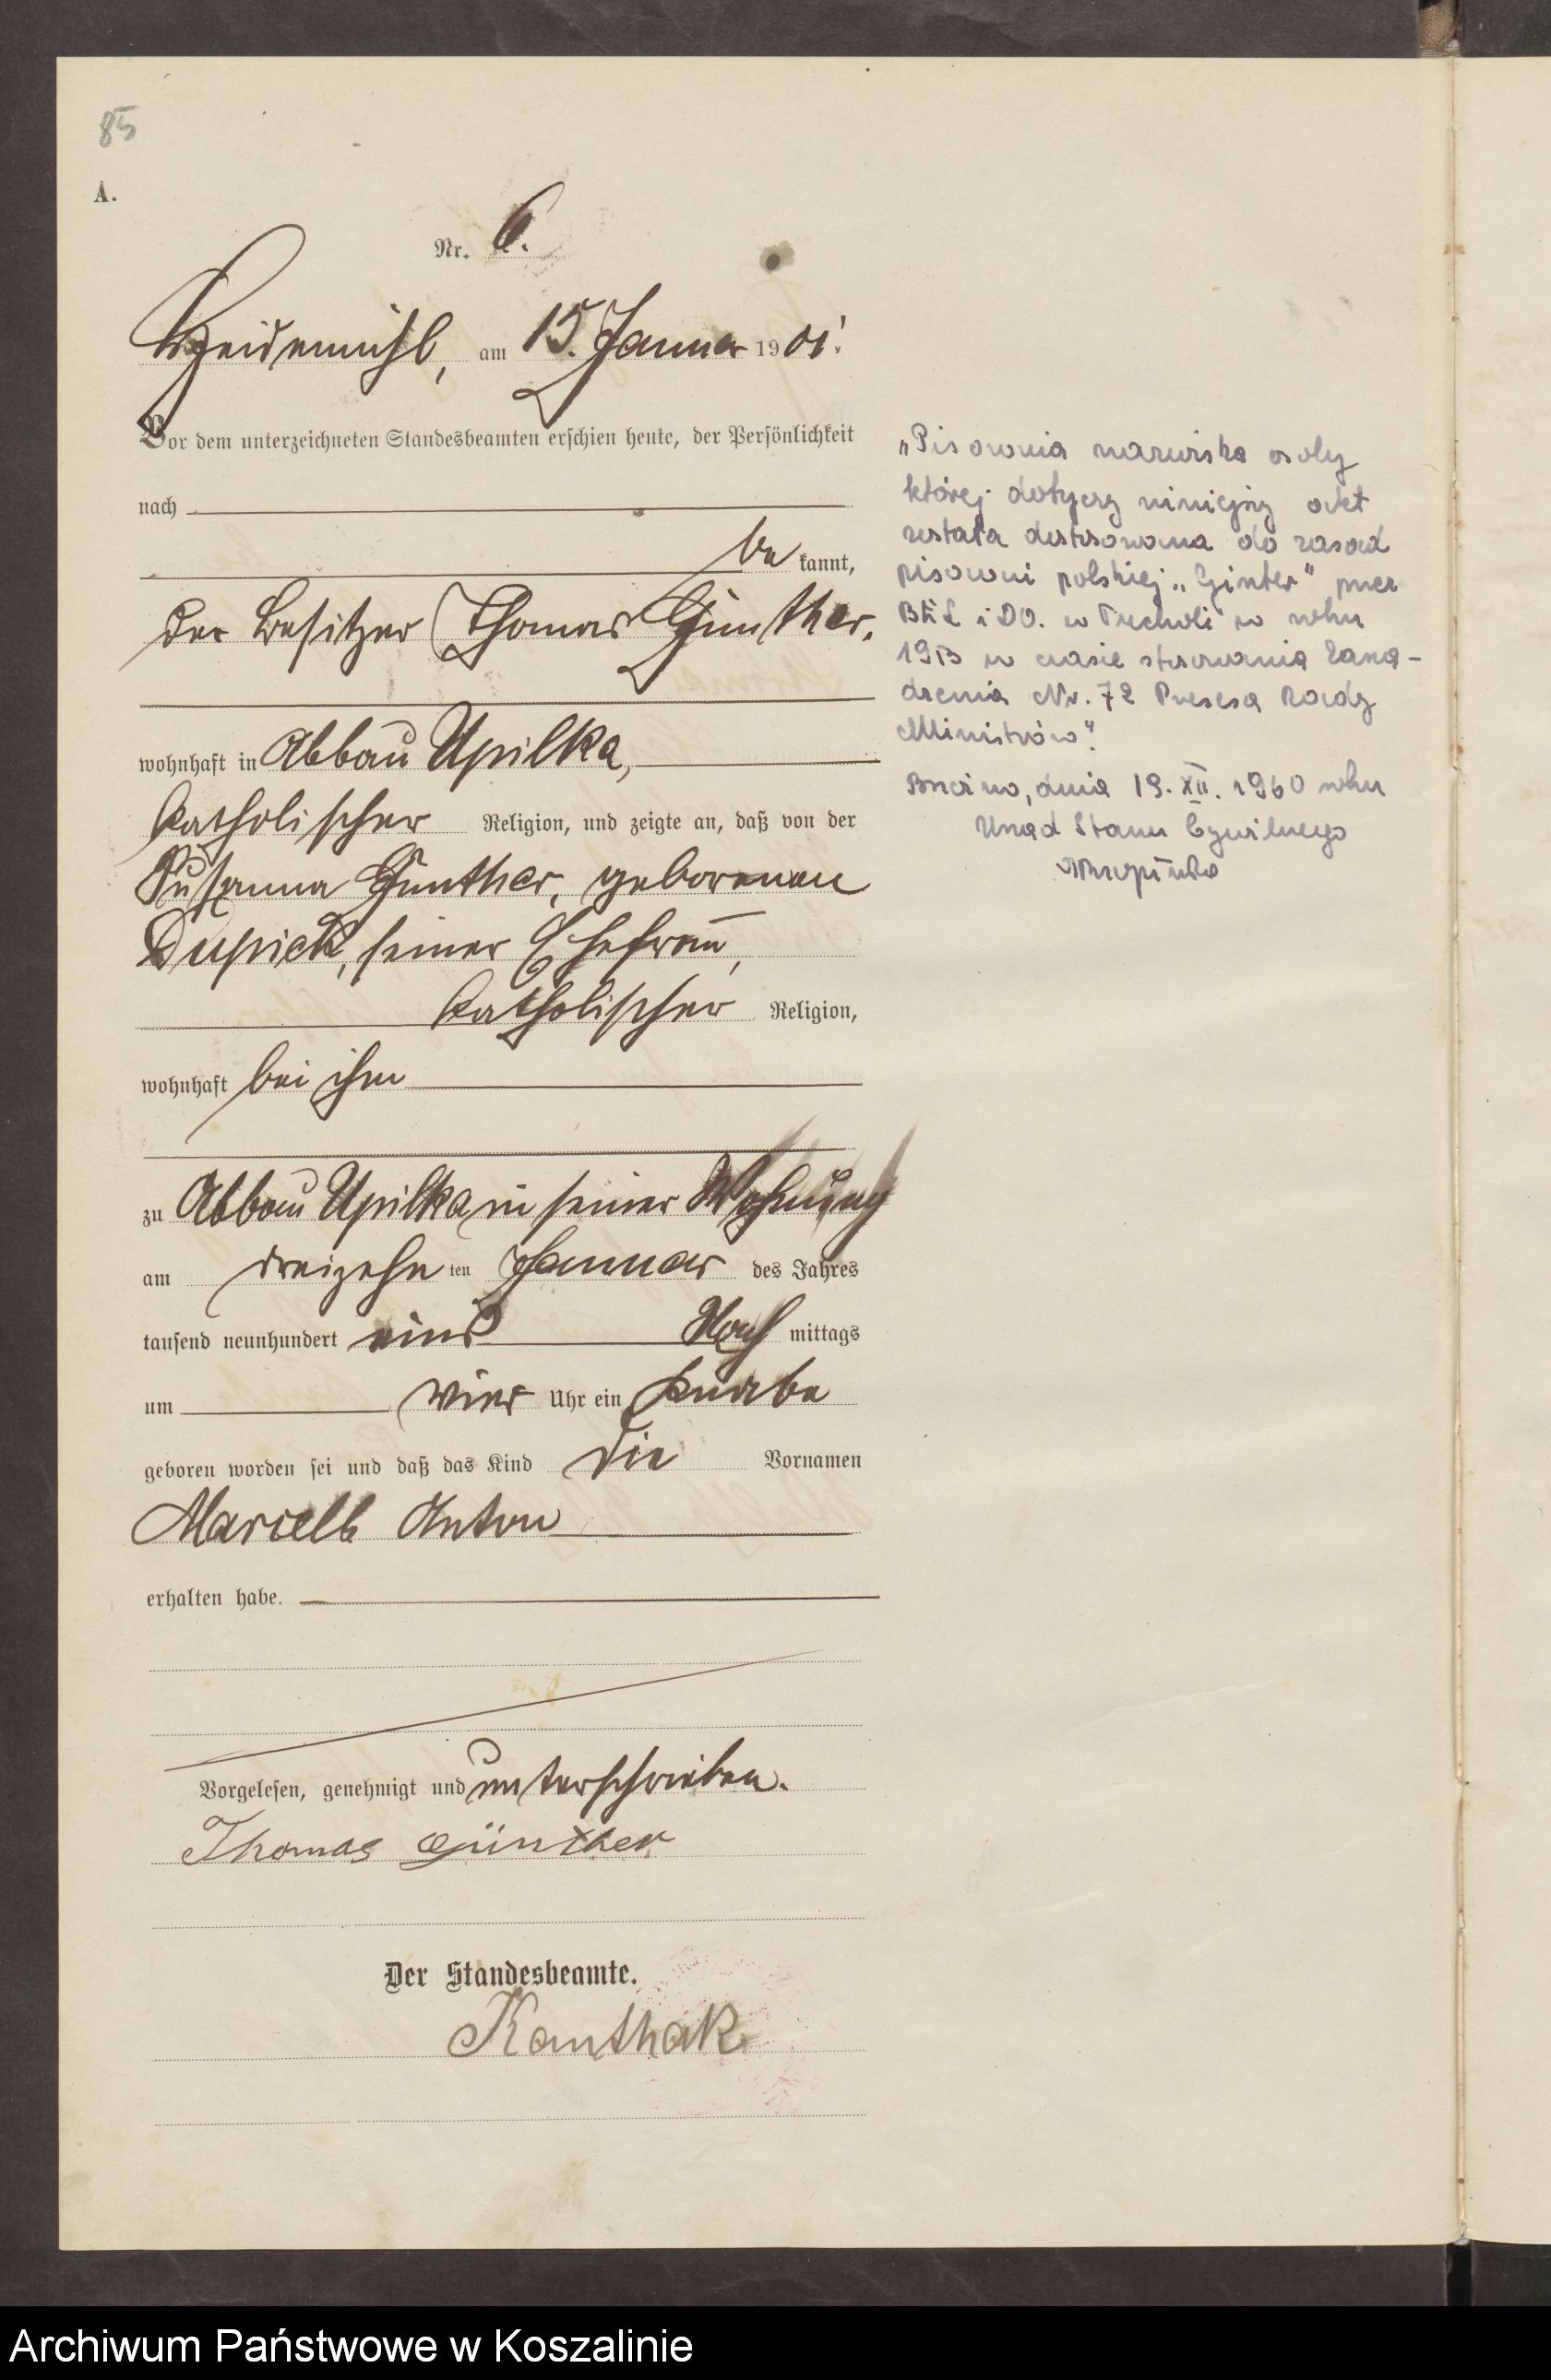 85
A.
Nr. 6.
Heidemühl, am 15. Januar 1901.
Vor dem unterzeichneten Standesbeamten erschien heute, der Persönlichkeit
nach
be kannt,
der Besitzer Thomas Günther,
wohnhaft in Abbau Upilka,
katholischer Religion, und zeigte an, daß von der
Susanna Günther, geborenen
Dupick, seiner Ehefrau,
katholischer Religion,
wohnhaft bei ihm
zu Abbau Upilka in seiner Wohnung
am dreizehn ten Januar des Jahres
tausend neunhundert eins Nach mittags
um vier Uhr ein Knabe
geboren worden sei und daß das Kind die Vornamen
Marcell Anton
erhalten habe.
Vorgelesen, genehmigt und unterschrieben.
Thomas Günther
Der Standesbeamte.
Kanthak
„Pisownia nazwiska osoby
której dotyczy niniejszy akt
została dostosowana do zasad
pisowni polskiej „Ginter" przez
i DO. w w roku
1953 w czasie stosowania Zarzą-
dzenia Nr. 72 Prezesa Rady
Ministrów".
dnia 19. XII. 1960 roku
Urząd Stanu Cywilnego
Archiwum Państwowe w Koszalinie